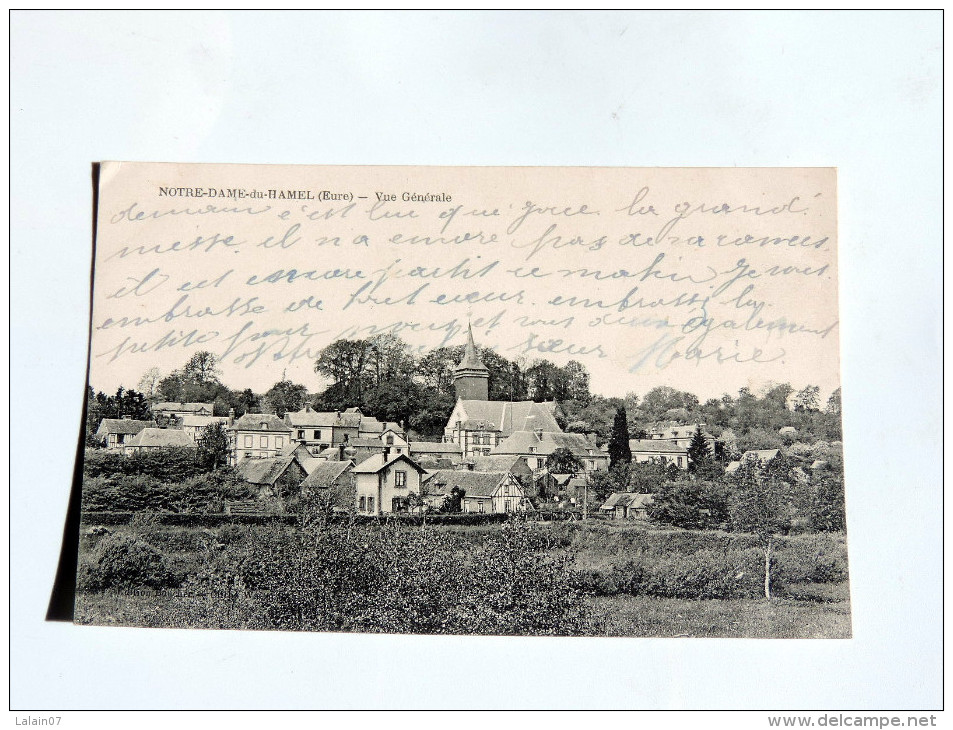 NOTRE-DAME-du-HAMEL (Eure) — Vue Générale
demain c'est lui qui la grand
messe. il n a encore pas de
il est encore partit ce matin Je vous
embrasse de tout cœur. embrassé la
petite pour nous et vous deux egalement
votre sœur Marie
Lalain07
www.delcampe.net